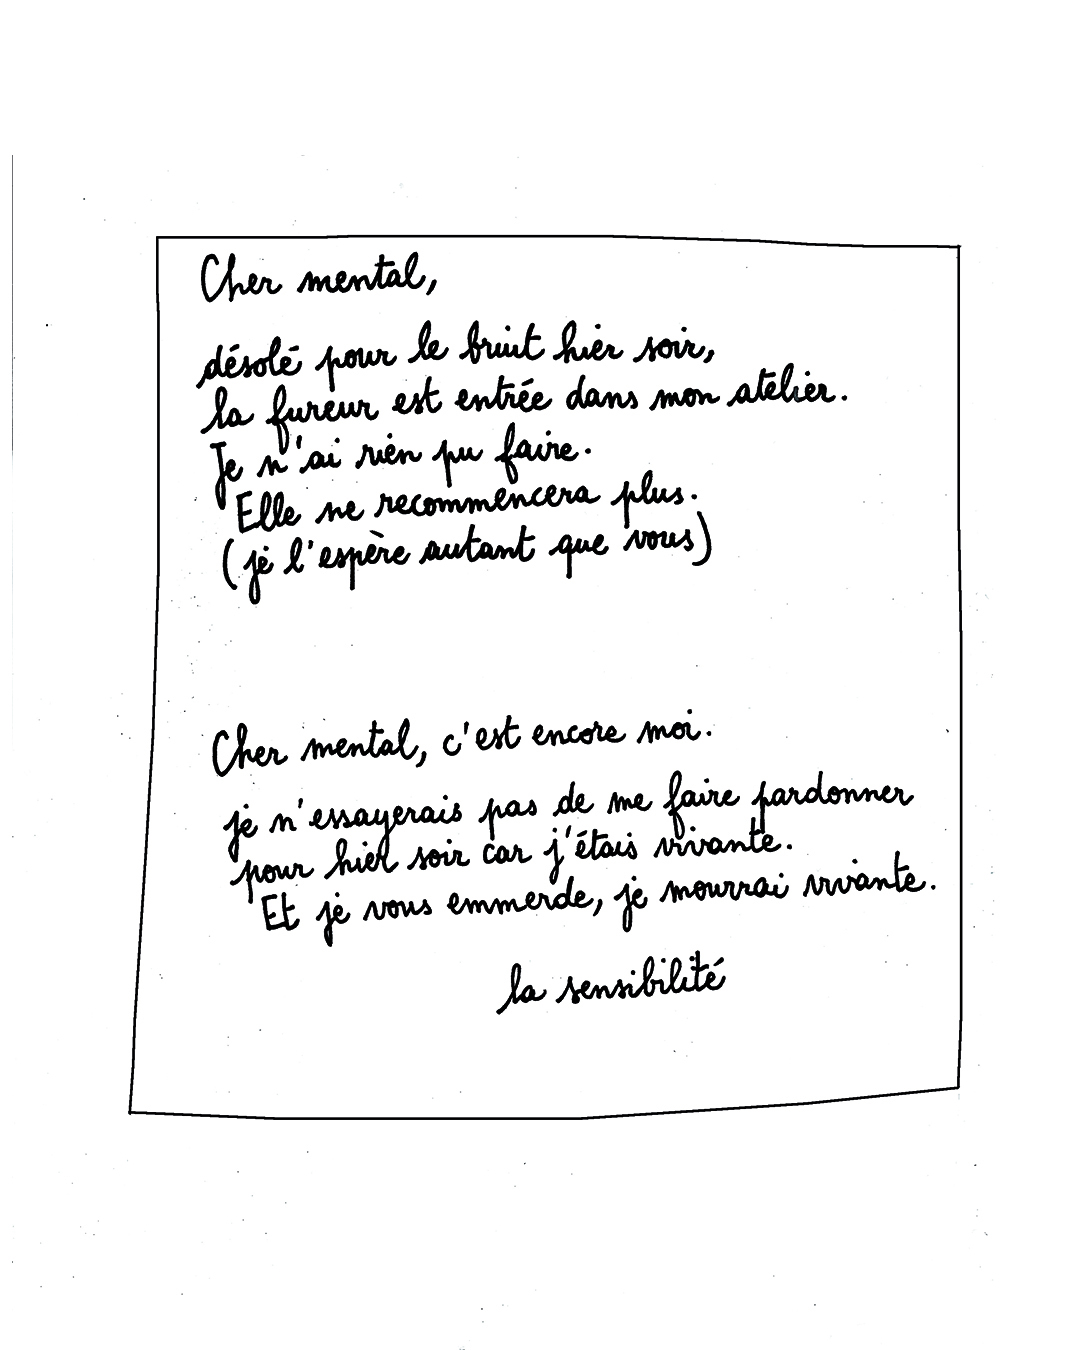 Cher mental,
désolé pour le bruit hier soir,
la fureur est entrée dans mon atelier.
Je n'ai rien pu faire.
Elle ne recommencera plus.
(je l'espère autant que vous)
Cher mental, c'est encore moi.
je n'essayerais pas de me faire pardonner
pour hier soir car j'étais vivante.
Et je vous emmerde, je mourrai vivante.
la sensibilité